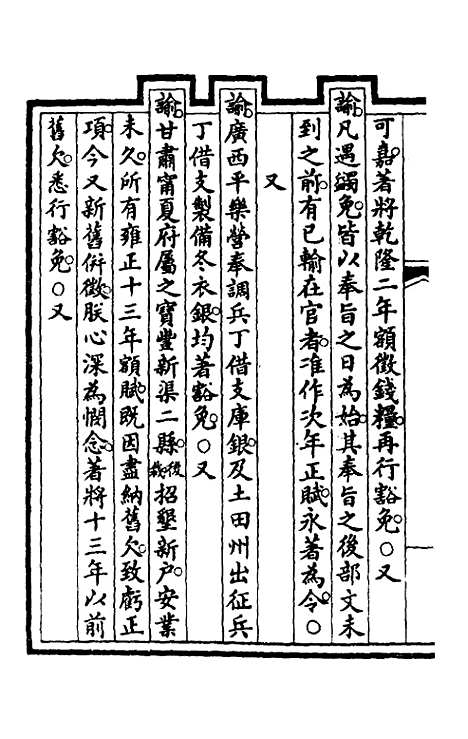 可嘉著將乾隆二年額徵錢糧再行豁免○又
諭凡遇蠲免皆以奉旨之日為始其奉旨之後部文未
到之前有已輸在官者准作次年正賦永著為令○
又
諭廣西平樂營奉調兵丁借支庫銀及土田州出征兵
丁借支製備冬衣銀均著豁免○又
諭甘肅甯夏府屬之寶豐新渠二縣後裁招墾新戶安業
未久所有雍正十三年額賦既因盡納舊欠致虧正
項今又新舊併徵朕心深為憫念著將十三年以前
舊欠悉行豁免○又